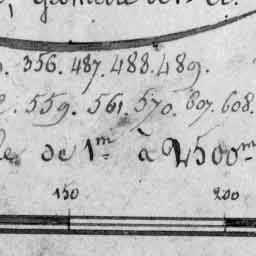 géomètre de 1re Cl.
356. 487. 488. 489.
559. 561. 570. 607. 608.
de 1m à 2500m
150 200